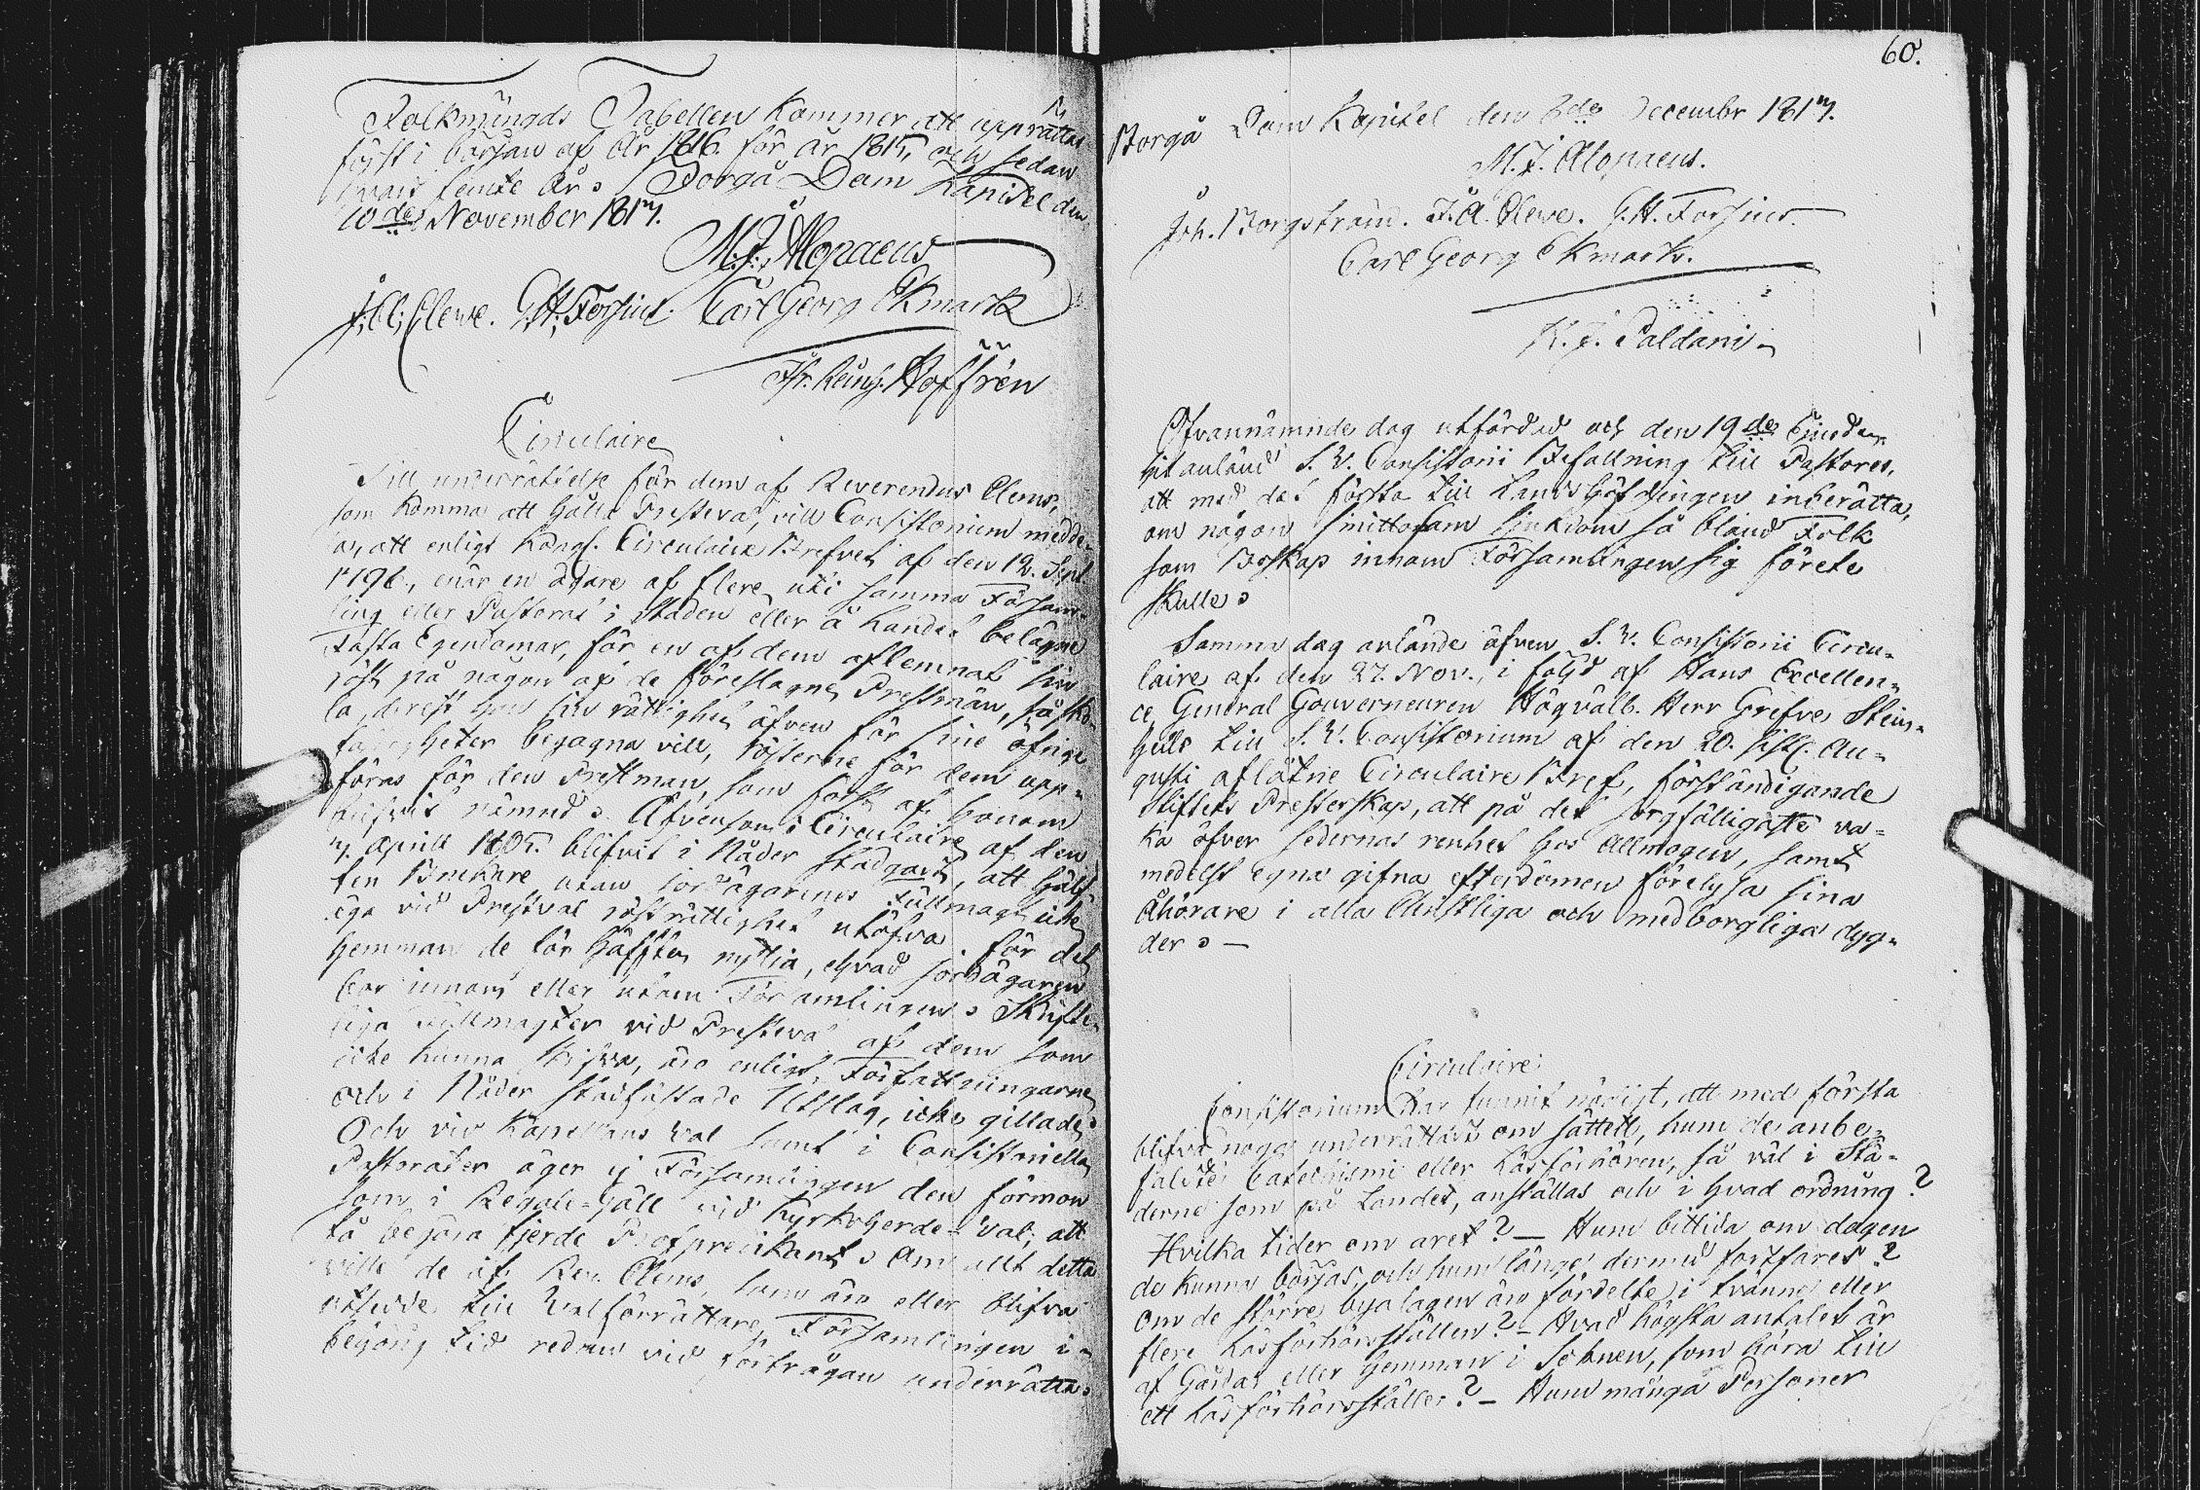 Folkmängds Tabellen kommer att upprättas
först i början af År 1816. för år 1815, och sedan
hvart femte År. Borgå Dom Kapitel den
10de November 1817.
M. J. Alopaeus
J. A. Cleve. G. H. Forsius. Carl Georg Ekmark
Fr. Reinh. Hoffrén
Circulaire
Till underrättelse för dem af Reverendus Clerus,
som komma att hålla Presteval, vill Consistorium medde-
la, att enligt Kongl. Circulaire Brefvet af den 12. Sept
1796., enär en ägare af flere uti samma Försam-
ling eller Pastorat i Staden eller å Landet belägne
Fasta Egendomar, för en af dem aflemnat sin
röst på någon af de föreslagne Prestmän, så sko-
la, derest han sin rättighet äfven för sine öfrige
lägenheter begagna vill, rösterne för dem upp-
föras för den Prestman, som först af honom
blifvit nämnd. Äfvensom i Circulaire af den
7. April 1805. blifvit i Nåder stadgadt, att Hälf-
ten Brukare utan jordägarenes Fullmagt icke
ega vid Prestval rösträttighet utöfva för det
Hemman de för Hälften nyttja, ehvad jordägaren
bor innom eller utom Församlingen. Skrifte-
liga Fullmagter vid Presteval af dem som
icke kunna skrifva, äro enligt Författningarne
och i Nåder stadfästade Utslag, icke gillade.
Och vid Kapellans Val samt i Consistoriella
Pastorater äger ej Församlingen den förmon
som i Regale-Gäll vid Kyrkoherde-Val; att
få begära fjerde Profpredikant. Om allt detta
ville de af Rev. Clerus, som äro eller blifva
utsedde till Valförrättare, Församlingen i
behörig tid redan vid förfrågan underrätta.
60.
Borgå Dom Kapitel den 3de Decembr 1817.
M. J. Alopaeus.
Joh. Borgström. J. A. Cleve. G. H. Forsius.
Carl Georg Ekmark.
K. J. Paldani
Ofvannämnde dag utfärdad och den 19de Ejusdem
hit anländ S. V. Consistorii Befallning till Pastorer,
att med det första till Landshöfdingen inberätta,
om någon smittosam sjukdom så bland Folk
som Boskap innom Församlingen sig förete
skulle.
Samma dag anlände äfven S. V. Consistorii Circu-
laire af den 27. Nov., i följd af Hans Excellen-
ce General Gouverneuren Högvälb. Herr Grefve Stein-
heils till S. V. Consistorium af den 20. sistl. Au-
gusti aflåtne Circulaire Bref, förständigande
Stiftets Presterskap, att på det sorgfälligaste va-
ka öfver sedernas renhet hos Allmogen, samt
medelst egna gifna efterdömen förelysa sina
Åhörare i alla Christliga och medborgliga dyg-
der. —
Circulaire.
Consistorium har funnit nödigt, att med första
blifva noga underrättadt om sättet, huru de anbe-
falte Catechismi eller Läsförhören, så väl i Stä-
derne som på Landet, anställas och i hvad ordning?
Hvilka tider om aret? — Huru bittida om dagen
de kunna börjas, och huru länge dermed fortfares?
Om de större byalagen äro fördelte i tvänne eller
flere Läsförhörsställen? — Hvad högsta antalet är
af Gårdar eller Hemman i Socknen, som höra till
ett Läsförhörsställe? — Huru många Personer